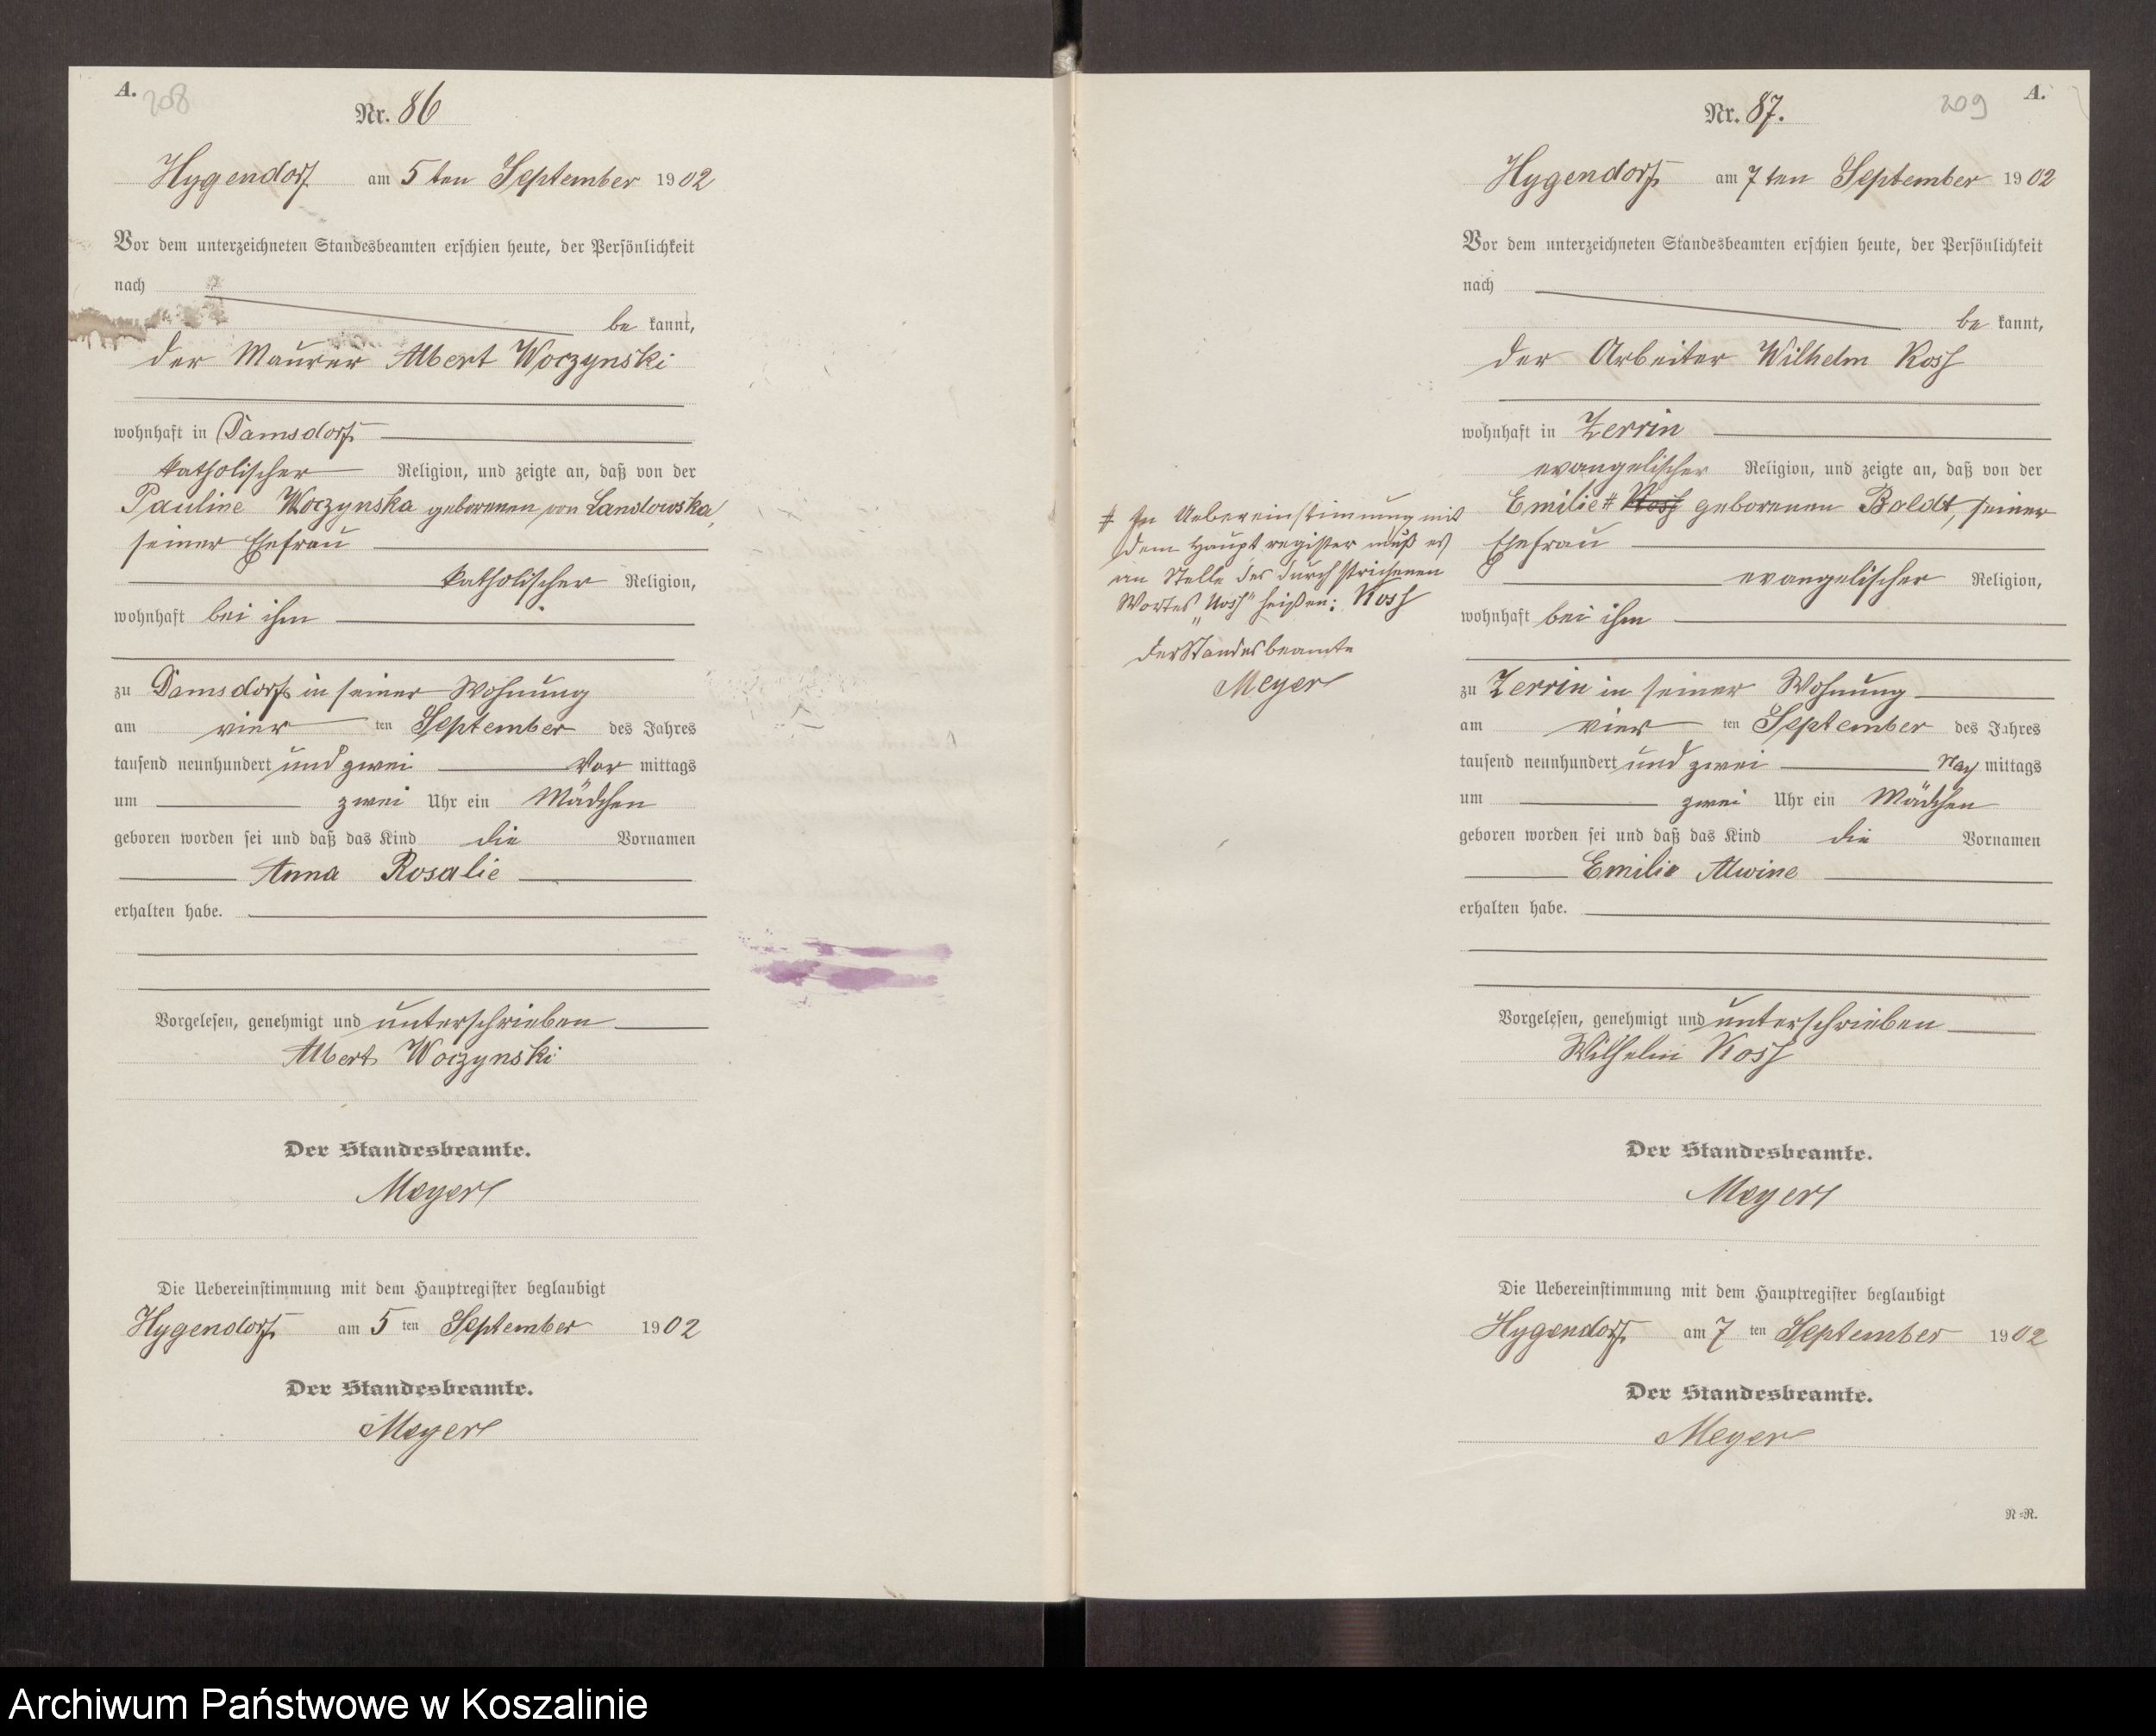 A.
208
Nr. 86
Hygendorf am 5ten September 1902
Vor dem unterzeichneten Standesbeamten erschien heute, der Persönlichkeit
nach
be kannt,
der Maurer Albert Woczynski
wohnhaft in Damsdorf
katholischer Religion, und zeigte an, daß von der
Pauline Woczynska geborenen von Landowska,
seiner Ehefrau
katholischer Religion,
wohnhaft bei ihm
zu Damsdorf in seiner Wohnung
am vier ten September des Jahres
tausend neunhundert und zwei Vor mittags
um zwei Uhr ein Mädchen
geboren worden sei und daß das Kind die Vornamen
Anna Rosalie
erhalten habe.
Vorgelesen, genehmigt und unterschrieben
Albert Woczynski
Der Standesbeamte.
Meyer
Die Uebereinstimmung mit dem Hauptregister beglaubigt
Hygendorf am 5 ten September 1902
Der Standesbeamte.
Meyer
209
A.
Nr. 87.
Hygendorf am 7ten September 1902
Vor dem unterzeichneten Standesbeamten erschien heute, der Persönlichkeit
nach
be kannt,
der Arbeiter Wilhelm Koss
wohnhaft in Zerrin
evangelischer Religion, und zeigte an, daß von der
Emilie # Noss geborenen Boldt, seiner
Ehefrau
evangelischer Religion,
wohnhaft bei ihm
zu Zerrin in seiner Wohnung
am vier ten September des Jahres
tausend neunhundert und zwei Nach mittags
um zwei Uhr ein Mädchen
geboren worden sei und daß das Kind die Vornamen
Emilie Alwine
erhalten habe.
Vorgelesen, genehmigt und unterschrieben
Wilhelm Koss
Der Standesbeamte.
Meyer
Die Uebereinstimmung mit dem Hauptregister beglaubigt
Hygendorf am 7 ten September 1902
Der Standesbeamte.
Meyer
N=R.
# In Uebereinstimmung mit
dem Hauptregister muß es
an Stelle des durchstrichenen
Wortes „Noss" heißen: Koss
Der Standesbeamte
Meyer
Archiwum Państwowe w Koszalinie